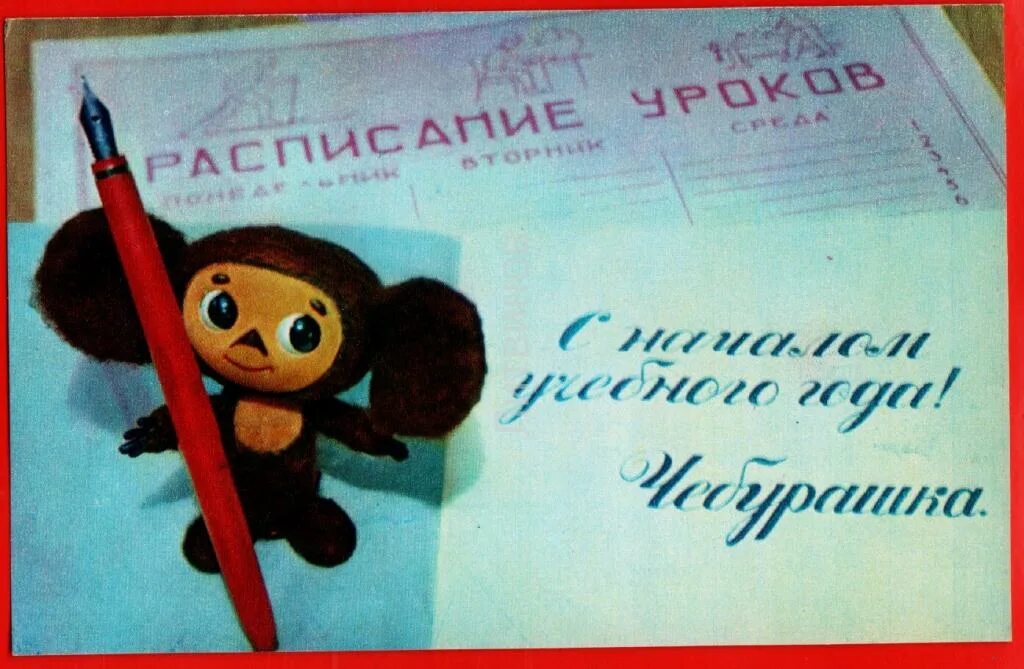 РАСПИСАНИЕ УРОКОВ
ПОНЕДЕЛЬНИК ВТОРНИК СРЕДА
1
2
3
4
5
6
С началом
учебного года!
Чебурашка.